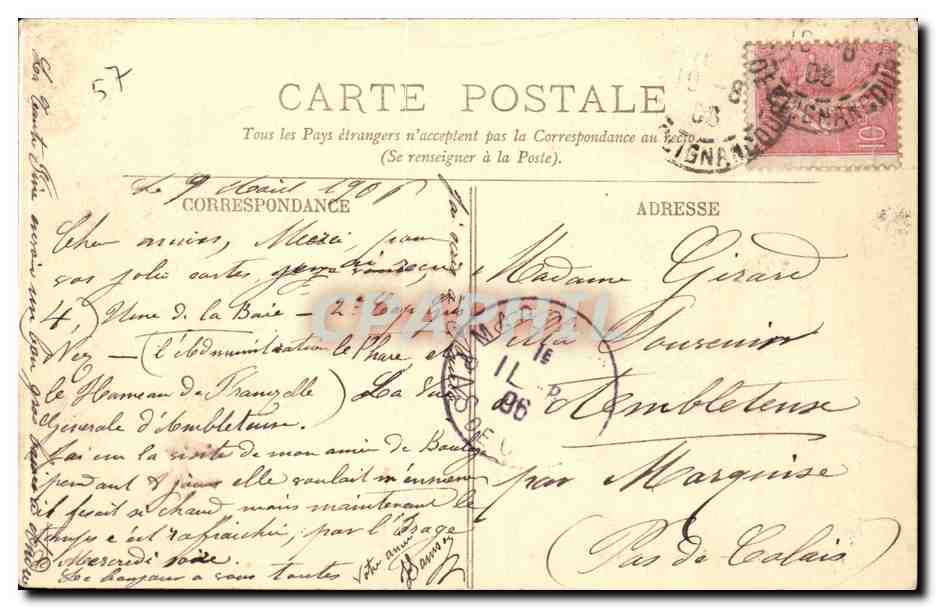 57
CARTE POSTALE
Tous les Pays étrangers n'acceptent pas la Correspondance au recto
(Se renseigner à la Poste).
CORRESPONDANCE
ADRESSE
Le 9 1906
amies, Merci pour
vos jolies cartes reçu
4, Une de la Baie – 2e Cap Gris
Nez – (l'Administration le Phare et
le Hameau de Framzelle) La Vue
Générale d'Ambleteuse.
J'ai eu la visite de mon amie de Boulogne
pendant 8 jours elle voulait m'emmener
il fesait si chaud mais maintenant le
temps c'est rafraichi par l'Orage
Mercredi soir
Le bonjour a vous toutes
Votre amie
La Tante Fine un bon gros
J'ai
Madame Girard
Villa Souvenir
Ambleteuse
par Marquise
(Pas de Calais)
CPARTIL
MARQ
1E
11
06
PAS DE C
10 8
06
CLIGNANCOURT
10